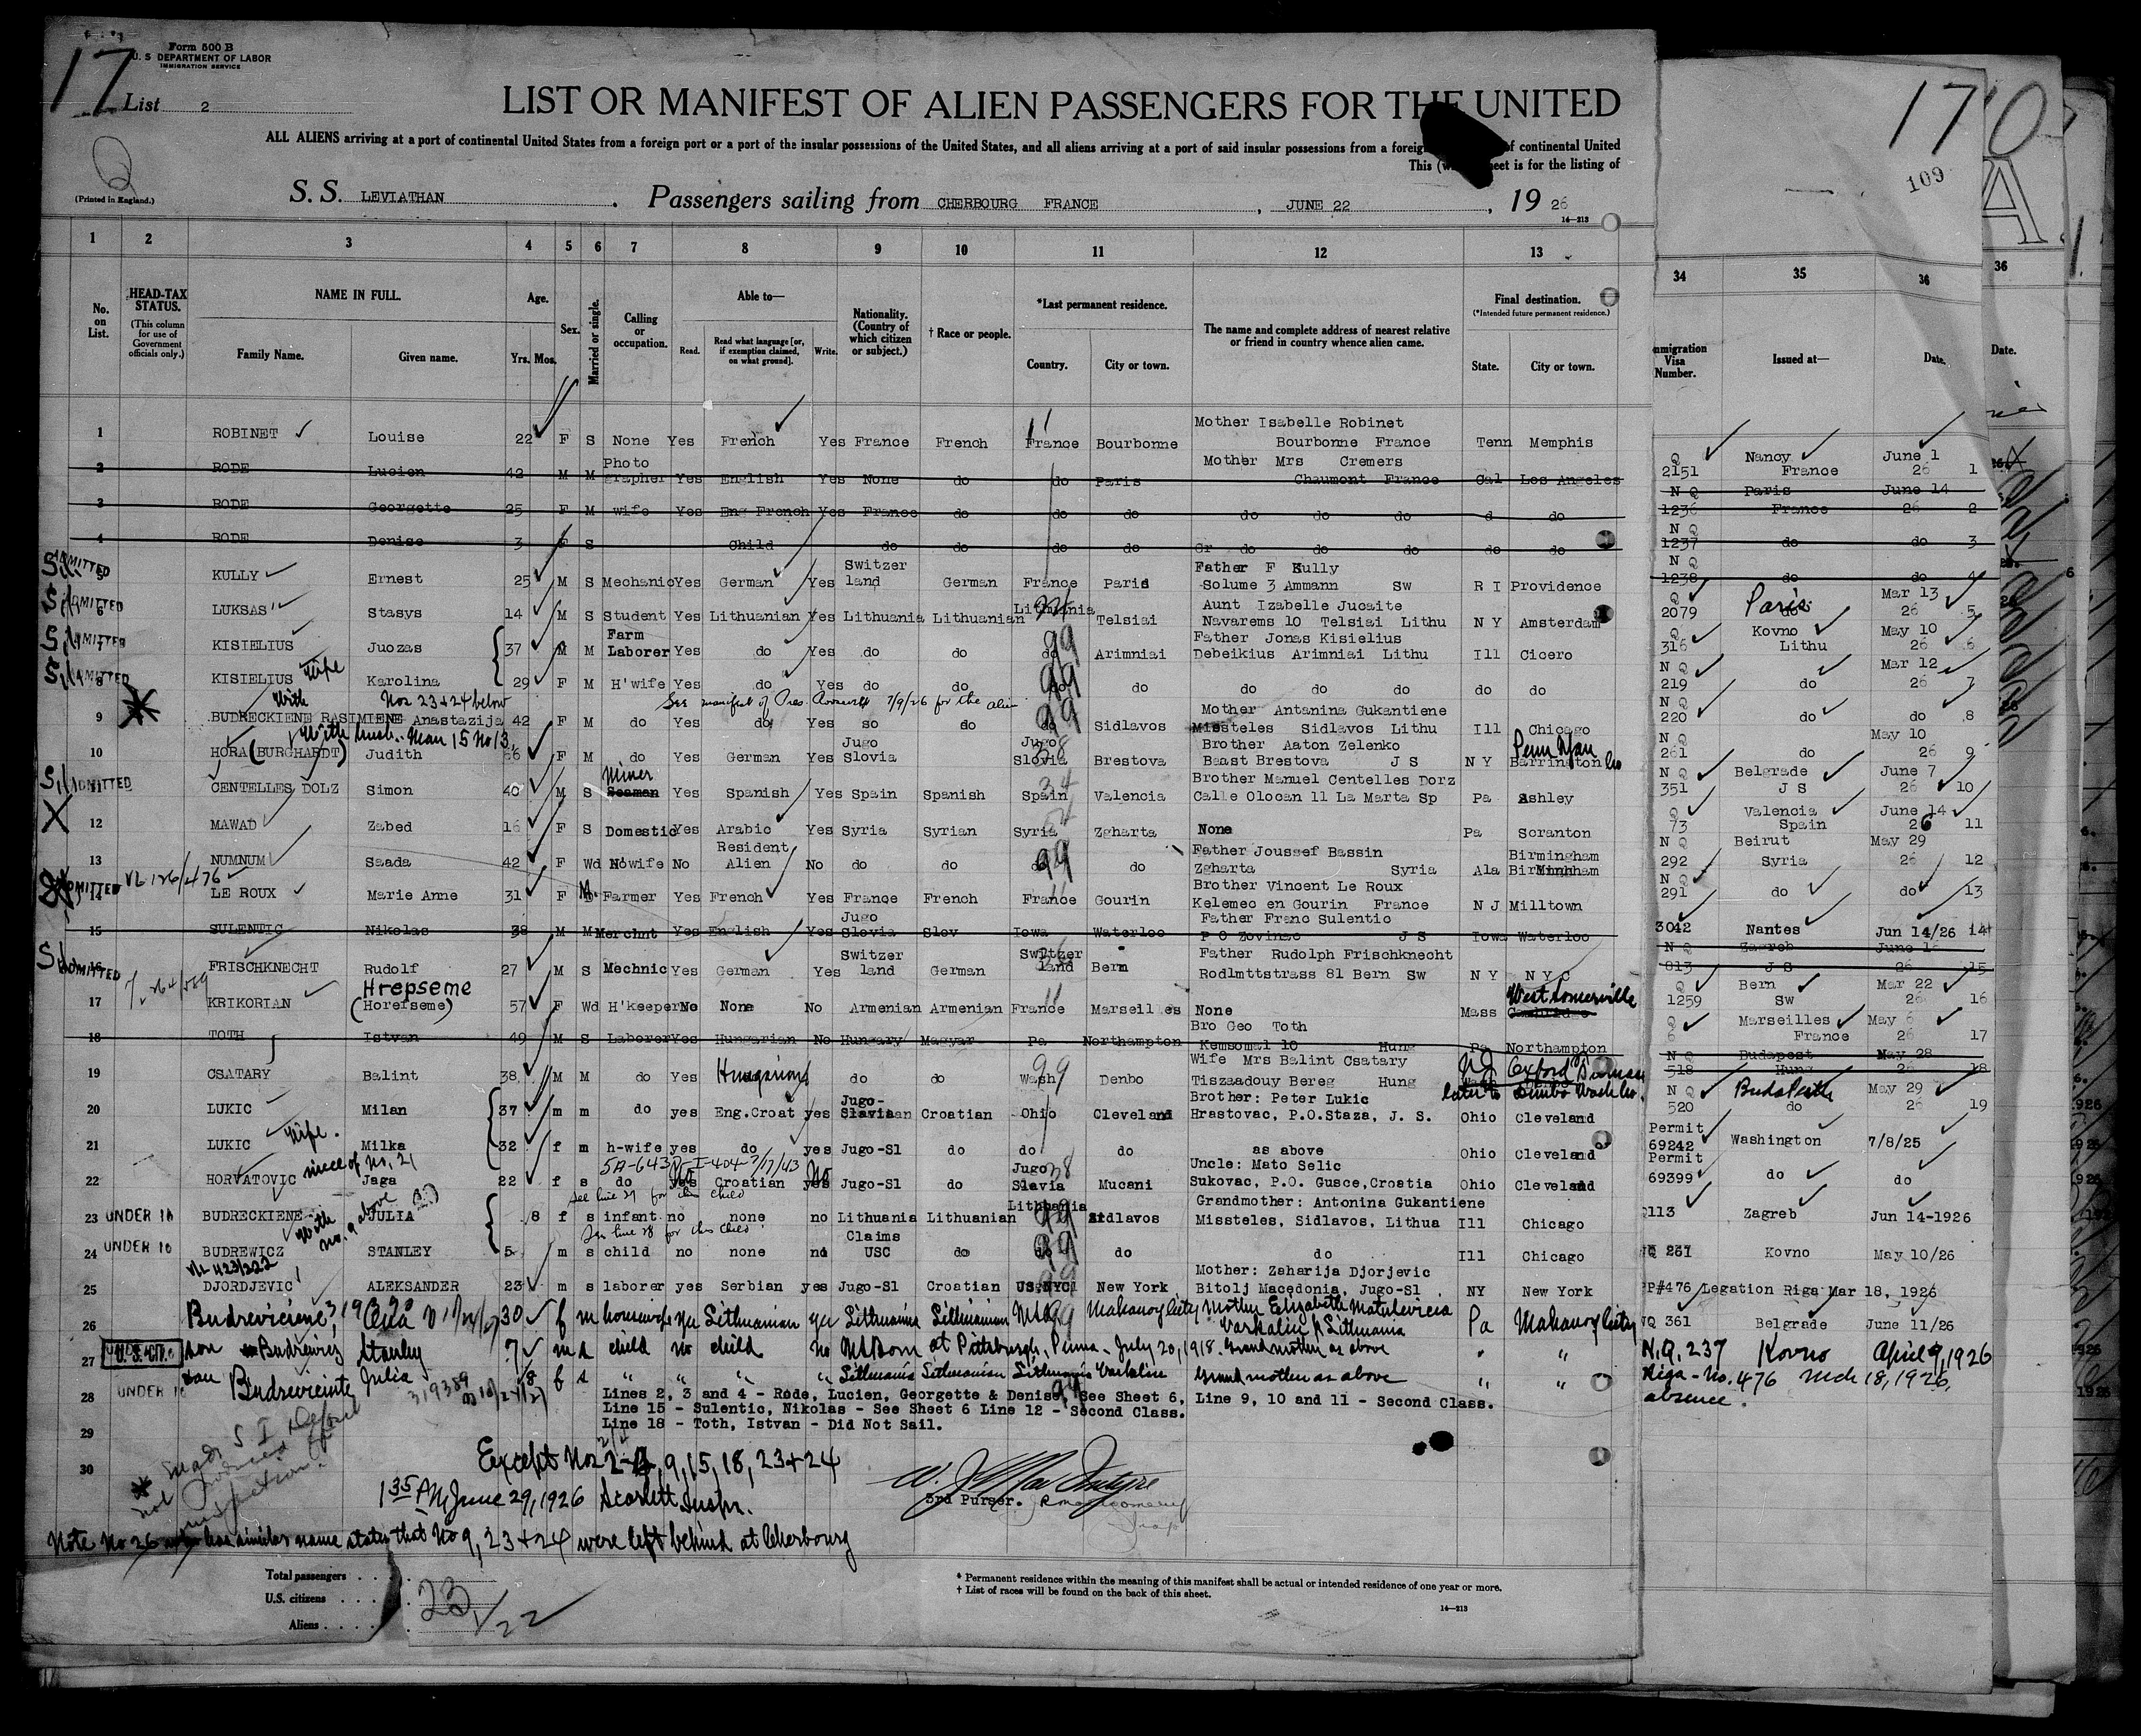 17
Form 500 B
U. S. DEPARTMENT OF LABOR
IMMIGRATION SERVICE
List 2
LIST OR MANIFEST OF ALIEN PASSENGERS FOR THE UNITED
ALL ALIENS arriving at a port of continental United States from a foreign port or a port of the insular possessions of the United States, and all aliens arriving at a port of said insular possessions from a foreig of continental United
This (w eet is for the listing of
(Printed in England.)
S. S. LEVIATHAN . Passengers sailing from CHERBOURG FRANCE , JUNE 22 , 19 26
14—213
170
109
1 2 3 4 5 6 7 8 9 10 11 12 13 34 35 36 36
No. on List.
HEAD-TAX STATUS. (This column for use of Government officials only.)
NAME IN FULL. Family Name. Given name.
Age. Yrs. Mos.
Sex.
Married or single.
Calling or occupation.
Able to— Read. Read what language [or, if exemption claimed, on what ground]. Write.
Nationality. (Country of which citizen or subject.)
† Race or people.
*Last permanent residence. Country. City or town.
The name and complete address of nearest relative or friend in country whence alien came.
Final destination. (*Intended future permanent residence.) State. City or town.
mmigration Visa Number. Issued at— Date. Date.
Mother Isabelle Robinet
1 ROBINET Louise 22 F S None Yes French Yes France French France Bourbonne Bourbonne France Tenn Memphis
Photo Mother Mrs Cremers
2 RODE Lucien 42 M M grapher Yes English Yes None do do Paris Chaumont France Cal Los Angeles
3 RODE Georgette 25 F M wife Yes Eng French Yes France do do do do do do d do
4 RODE Denise 3 F S Child do do do do Gr do do do do do
Switzer Father F Kully
ADMITTED 5 KULLY Ernest 25 M S Mechanic Yes German Yes land German France Paris Solume 3 Ammann Sw R I Providence
Lithuania Aunt Izabelle Jucaite
ADMITTED 6 LUKSAS Stasys 14 M S Student Yes Lithuanian Yes Lithuania Lithuanian Telsiai Navarems 10 Telsiai Lithu N Y Amsterdam
Farm Father Jonas Kisielius
ADMITTED 7 KISIELIUS Juozas 37 M M Laborer Yes do Yes do do do Arimniai Debeikius Arimniai Lithu Ill Cicero
ADMITTED 8 KISIELIUS Wife Karolina 29 F M H'wife Yes do Yes do do do do do do do do do do
With Nos 23+24 below See manifest of Pres. Roosevelt 7/9/26 for the alien Mother Antanina Gukantiene
9 BUDRECKIENE RASIMIENE Anastazija 42 F M do Yes do Yes so do do Sidlavos Missteles Sidlavos Lithu Ill Chicago
With husb. Man 15 No 13. Jugo Jugo Brother Aaton Zelenko Penn Yan
10 HORA (BURGHARDT) Judith 66 F M do Yes German Yes Slovia Slovia Brestova Banst Brestova J S N Y Barrington Co
Miner Brother Manuel Centelles Dorz
ADMITTED 11 CENTELLES DOLZ Simon 40 M S Seaman Yes Spanish Yes Spain Spanish Spain Valencia Calle Olocan 11 La Marta Sp Pa Ashley
12 MAWAD Zabed 16 F S Domestic Yes Arabic Yes Syria Syrian Syria Zgharta None Pa Scranton
Resident Father Joussef Bassin Birmingham
13 NUMNUM Saada 42 F Wd H'wife No Alien No do do do do Zgharta Syria Ala Birmingham
Brother Vincent Le Roux
ADMITTED 14 LE ROUX Marie Anne 31 F Farmer Yes French Yes France French France Gourin Kelemec en Gourin France N J Milltown
Jugo Father Franc Sulentic
15 SULENTIC Nikolas 38 M M Merchnt Yes English Yes Slovia Slov Iowa Waterloo P O Zovinac J S Iowa Waterloo
Switzer Switzer Father Rudolph Frischknecht
ADMITTED 16 FRISCHKNECHT Rudolf 27 M S Mechnic Yes German Yes land German land Bern Rodlmttstrass 81 Bern Sw N Y N Y C
Hrepseme West Somerville
17 KRIKORIAN (Horefseme) 57 F Wd H'keeper No None No Armenian Armenian France Marseilles None Mass Cambridge
Bro Geo Toth
18 TOTH Istvan 49 M S Laborer Yes Hungarian No Hungary Magyar Pa Northampton Kemsomal 10 Hung Pa Northampton
Wife Mrs Balint Csatary
19 CSATARY Balint 38 M M do Yes Hungarian do do Wash Denbo Tiszaadouy Bereg Hung NJ Oxford
Jugo- Brother: Peter Lukic
20 LUKIC Milan 37 m m do yes Eng.Croat yes Slavia Croatian Ohio Cleveland Hrastovac, P.O.Staza, J. S. Ohio Cleveland
21 LUKIC Wife. Milka 32 f m h-wife yes do yes Jugo-Sl do do do as above Ohio Cleveland
niece of No. 21 Jugo Uncle: Mato Selic
22 HORVATOVIC Jaga 22 f s do yes Croatian No Jugo-Sl do Slavia Mucani Sukovac, P.O. Gusce,Croatia Ohio Cleveland
See line 27 for this child Lithuania Grandmother: Antonina Gukantiene
23 UNDER 16 BUDRECKIENE JULIA 8 f s infant no none no Lithuania Lithuanian Sidlavos Missteles, Sidlavos, Lithua Ill Chicago
With No. 9 above See line 28 for this child Claims
24 UNDER 16 BUDREWICZ STANLEY 5 m s child no none no USC do do do do Ill Chicago
Mother: Zaharija Djorjevic
25 DJORDJEVIC ALEKSANDER 23 m s laborer yes Serbian yes Jugo-Sl Croatian US.NYC New York Bitolj Macedonia, Jugo-Sl NY New York
26 Budreviciene, 30 f m housewife yes Lithuanian yes Lithuania Lithuanian Mahanoy City Mother Elizabeth Matulevicia Varkaliu Lithuania Pa Mahanoy City
27 U.S. CIT. son Budrewicz Stanley 7 m s child no child no US Born at Pittsburgh, Penna. July 20, 1918. Grandmother as above " "
28 UNDER 16 Budrevicinte Julia 8 f s " " " " Lithuania Lithuanian Lithuania Varkaliu Grandmother as above " "
Lines 2, 3 and 4 - Rode, Lucien, Georgette & Denise, See Sheet 6, Line 9, 10 and 11 - Second Class.
Line 15 - Sulentic, Nikolas - See Sheet 6 Line 12 - Second Class.
Line 18 - Toth, Istvan - Did Not Sail.
29
30
Except Nos 2-4, 9, 15, 18, 23+24
1 35 AM June 29, 1926 Scarlett Inspr.
3rd Purser.
Note No 26 has similar name states that No 9, 23+24 were left behind at Cherbourg
Total passengers . . . 23
U.S. citizens . . . . 1
Aliens . . . . . 22
* Permanent residence within the meaning of this manifest shall be actual or intended residence of one year or more.
† List of races will be found on the back of this sheet.
14—213
Q 2151 Nancy France June 1 26 1
N Q 1236 Paris France June 14 26 2
N Q 1237 do do 3
N Q 1238 do do 4
Q 2079 Paris do Mar 13 26 5
Q 316 Kovno Lithu May 10 26 6
N Q 219 do Mar 12 26 7
N Q 220 do do 8
N Q 261 do May 10 26 9
N Q 351 Belgrade J S June 7 26 10
Q 73 Valencia Spain June 14 26 11
N Q 292 Beirut Syria May 29 26 12
N Q 291 do do 13
3042 Nantes Jun 14/26 14
N Q 813 Zagreb J S June 1 26 15
Q 1259 Bern Sw Mar 22 26 16
Q 6 Marseilles France May 6 26 17
N Q 518 Budapest Hung May 28 26 18
N Q 520 Budapesth do May 29 26 19
Permit 69242 Washington 7/8/25
Permit 69399 do do
Q113 Zagreb Jun 14-1926
NQ 261 Kovno May 10/26
PP#476 Legation Riga Mar 18, 1926
NQ 361 Belgrade June 11/26
N.Q. 237 Kovno April 9, 1926
Riga - No. 476 Mch 18, 1926,
absence.